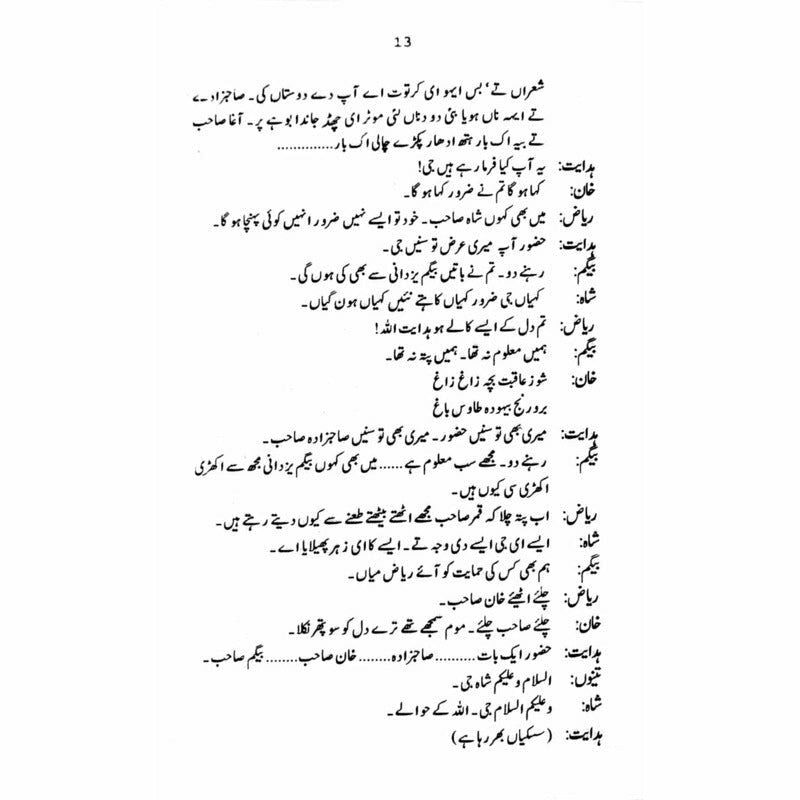 13
شعراں تے‘ بس ایہو ای کرتوت اے آپ دے دوستاں کی۔ صاحبزادے
تے ایسہ ناں ہویا بئی دو دناں لئی موٹر ای چھڈ جاندا بوہے پر۔ آغا صاحب
تے بیہ اک بار ہتھ ادھار پکڑے چالی اک بار...............
ہدایت: یہ آپ کیا فرما رہے ہیں جی!
خان: کہا ہو گا تم نے ضرور کہا ہو گا۔
ریاض: میں بھی کہوں شاہ صاحب۔ خود تو ایسے نہیں ضرور انہیں کوئی پہنچا ہو گا۔
ہدایت: حضور آپ میری عرض تو سنیں جی۔
بیگم: رہنے دو۔ تم نے باتیں بیگم یزدانی سے بھی کی ہوں گی۔
شاہ: کہیاں جی ضرور کہیاں کاہتے نئیں کہیاں ہون گیاں۔
ریاض: تم دل کے ایسے کالے ہو ہدایت اللہ!
بیگم: ہمیں معلوم نہ تھا۔ ہمیں پتہ نہ تھا۔
خان: شوز عاقبت بچہ زاغ زاغ
برو رنج بیہودہ طاوس باغ
ہدایت: میری بھی تو سنیں حضور۔ میری بھی تو سنیں صاحبزادہ صاحب۔
بیگم: رہنے دو۔ مجھے سب معلوم ہے...... میں بھی کہوں بیگم یزدانی مجھ سے اکھڑی
اکھڑی سی کیوں ہیں۔
ریاض: اب پتہ چلا کہ قمر صاحب مجھے اٹھتے بیٹھتے طعنے سے کیوں دیتے رہتے ہیں۔
شاہ: ایسے ای جی ایسے دی وجہ تے۔ ایسے کا ای زہر پھیلایا اے۔
بیگم: ہم بھی کس کی حمایت کو آئے ریاض میاں۔
ریاض: چلئے اٹھئے خان صاحب۔
خان: چلئے صاحب چلئے۔ موم سمجھے تھے ترے دل کو سو پتھر نکلا۔
ہدایت: حضور ایک بات.......... صاحبزادہ........ خان صاحب........ بیگم صاحب۔
تینوں: السلام و علیکم شاہ جی۔
شاہ: و علیکم السلام جی۔ اللہ کے حوالے۔
ہدایت: (سسکیاں بھر رہا ہے)